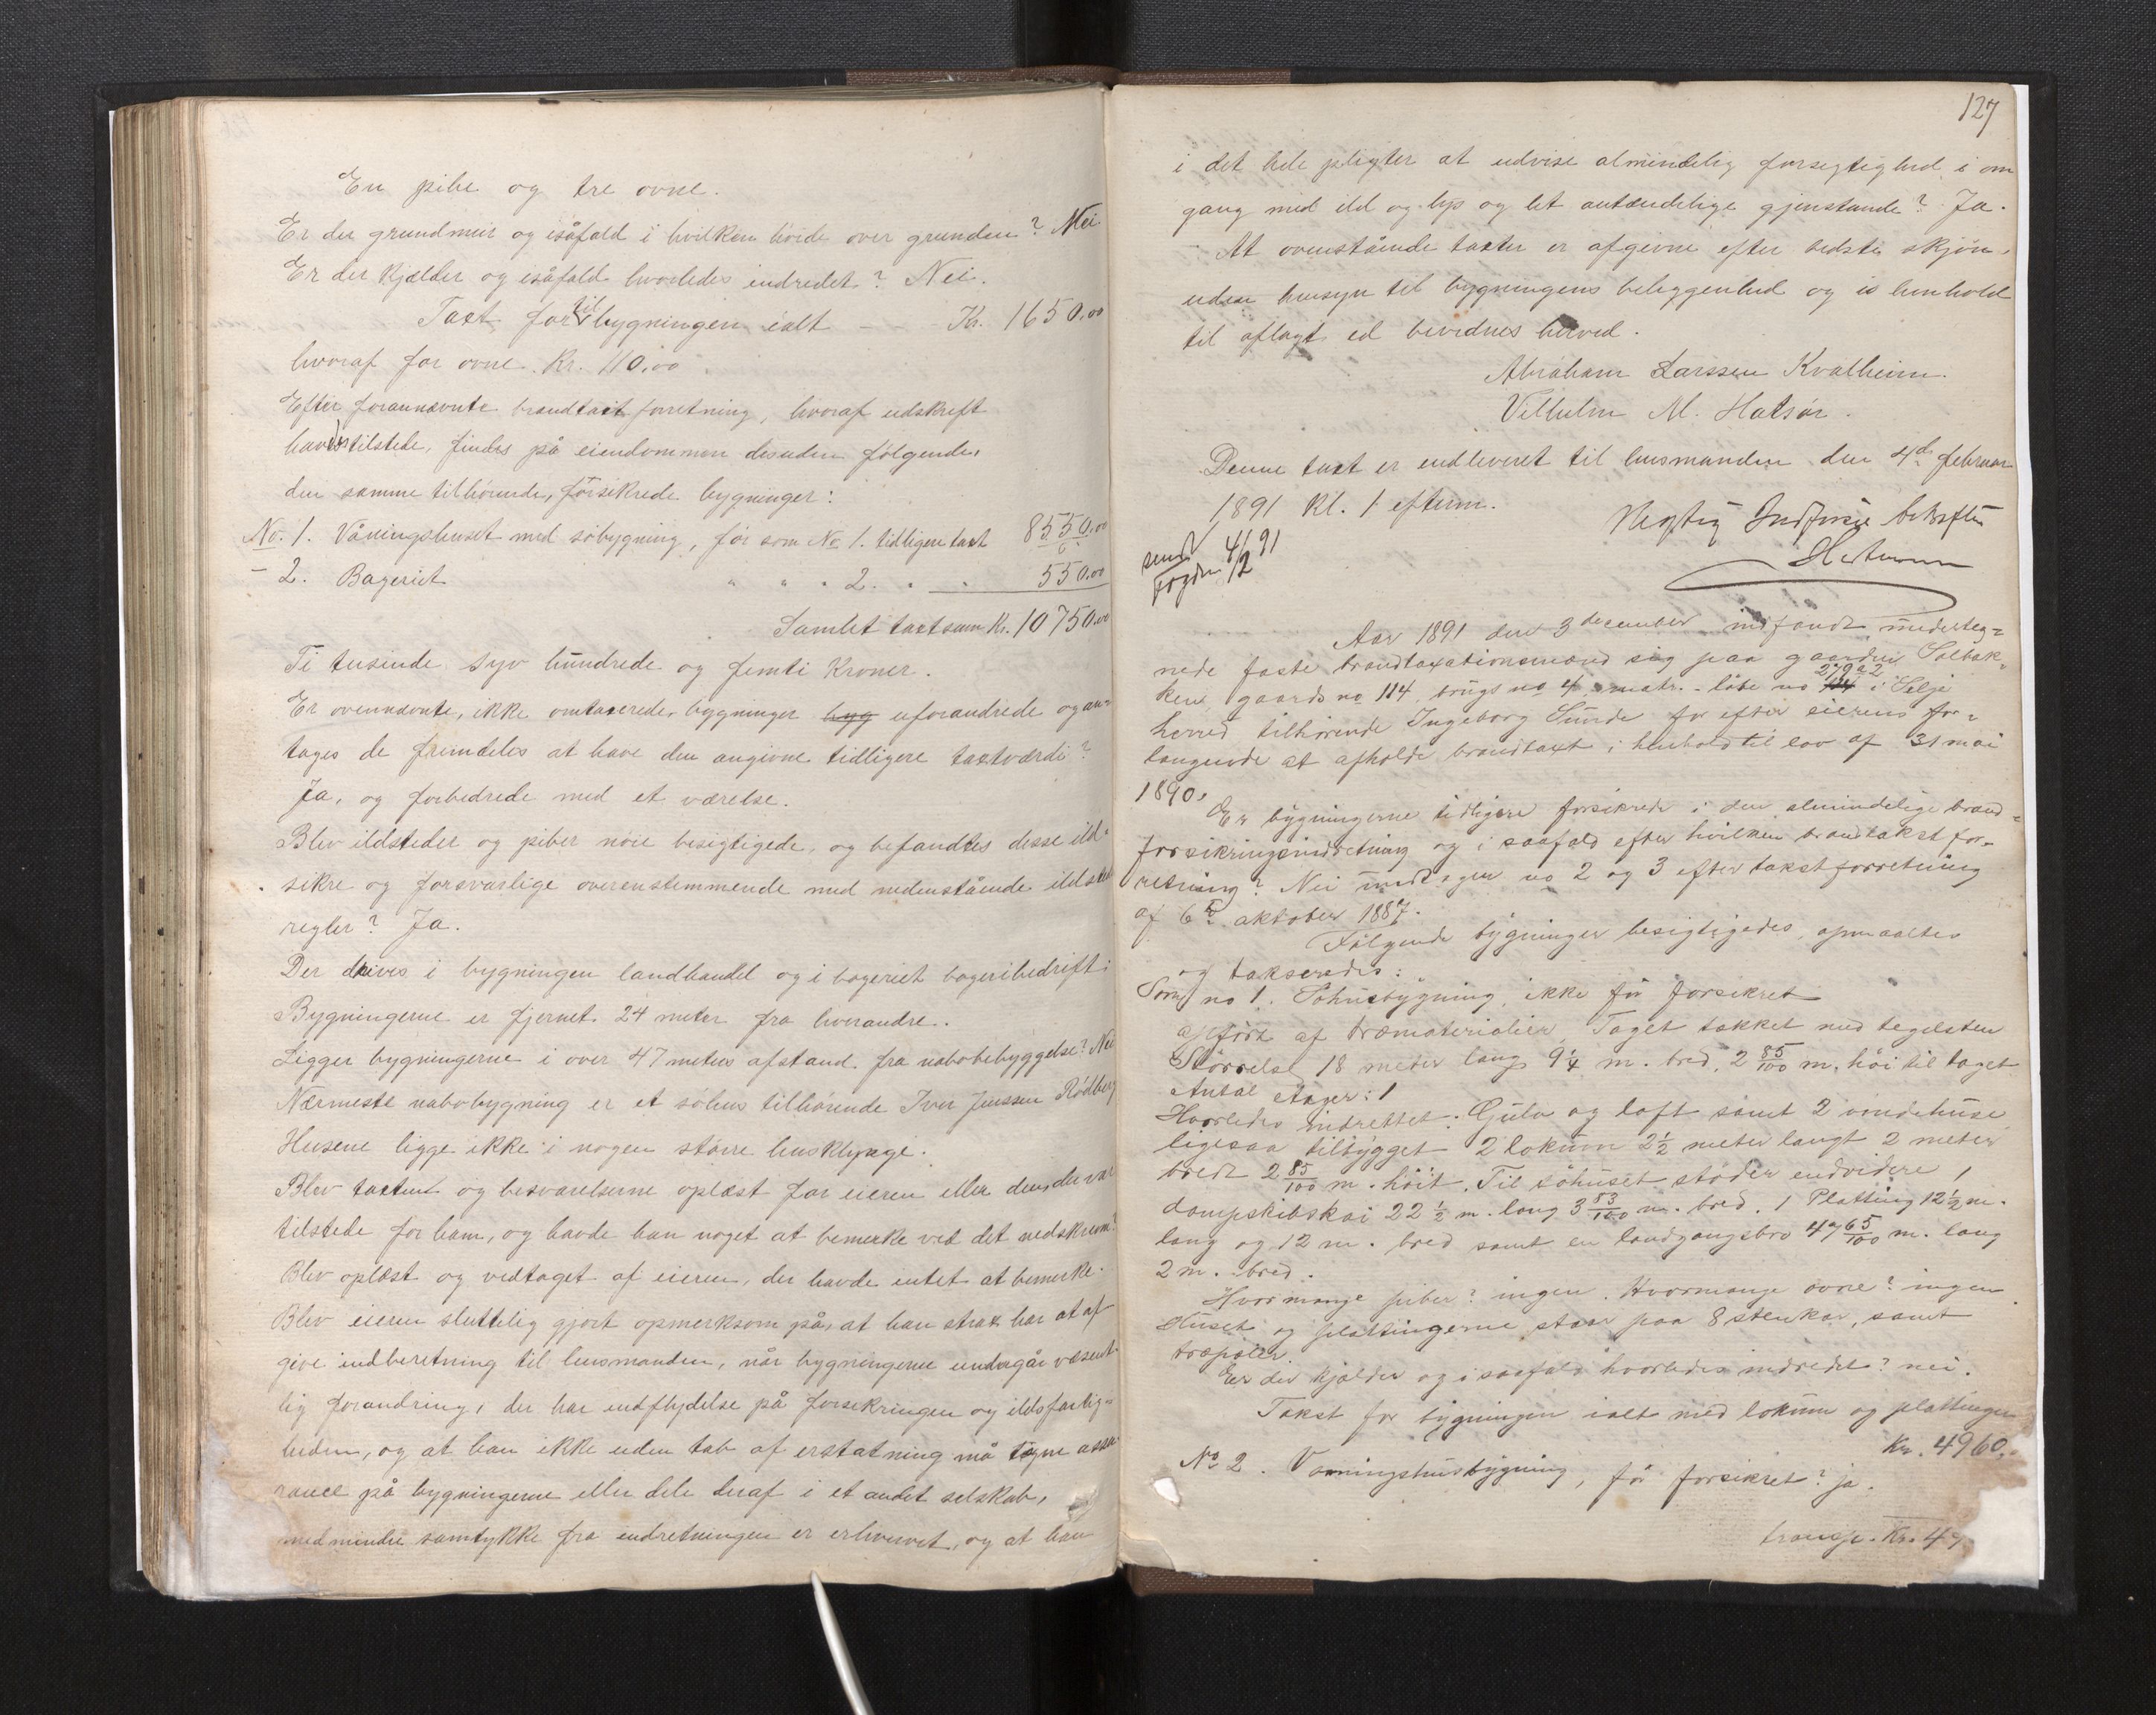 En pibe og tre ovne.
Er der grundmur og isåfald i hvilken høide over grunden? Nei
Er der Kjælder og isåfald hvorledes indredet? Nei.
Taxt for tilbygningen ialt Kr. 1650.00
hvoraf for ovne Kr. 110.00
Efter forannævnte brandtaxtforretning, hvoraf udskrift
havdes tilstede, findes på eiendommen desuden følgende,
den samme tilhørende, forsikrede bygninger:
No. 1. Våningshuset med søbygning, før som No 1. tidligere taxt 8550.00
- 2. Bageriet " " " 2. " " 550.00
Samlet taxtsum Kr. 10750.00
Ti tusinde syv hundrede og femti Kroner.
Er ovennævnte, ikke omtaxerede, bygninger byg uforandrede og an-
tages de fremdeles at have den angivne tidligere taxtværdi?
Ja, og forbedrede med et værelse.
Blev ildsteder og piber nøie besigtigede, og befandtes desse ild-
sikre og forsvarlige overenstemmende med nedenstående ildsteds
regler? Ja.
Der drives i bygningen landhandel og i bageriet bageribedrift.
Bygningerne er fjernet 24 meter fra hverandre.
Ligger bygningerne i over 47 meters afstand fra nabobebyggelse? Nei
Nærmeste nabobygning er et søhus tilhørende Iver Jenssen Rødberg
Husene ligge ikke i nogen større husklynge.
Blev taxten og besvarelserne oplæst for eieren eller den, der var
tilstede for ham, og havde han noget at bemerke ved det nedskrevne?
Blev oplæst og vedtaget af eieren, der havde intet at bemerke.
Blev eieren sluttelig gjort opmerksom på, at han strax har at af-
give indberetning til lensmanden, når bygningerne undergår væsent-
lig forandring, der har indflydelse på forsikringen og ildsfarlig-
heden, og at han ikke uden tab af erstatning må tegne assu-
rance på bygningerne eller dele deraf i et andet selskab,
medmindre samtykke fra indretningen er erhvervet, og at han
127
i det hele pligter at udvise almindelig forsigtighed i om
gang med ild og lys og let antændelige gjenstande? Ja.
At ovenstående taxter er afgivne efter bedste skjøn,
uden hensyn til bygningens beliggenhed og i henhold
til aflagt ed bevidnes herved.
Abraham Larssen Kvalheim.
Vilhelm M. Hatsør.
Denne taxt er indleveret til lensmanden den 4de februar
1891 kl. 1 efterm.
Rigtig Indførsel bekræftes
sendt
fogden 4/2 91
Aar 1891 den 3 december indfandt underteg=
nede faste brandtaxationsmænd sig paa gaarden Solbak-
ken gaards no 114, brugs no 4, matr.-løbe no 279a2 i Selje
herred tilhørende Ingeborg Sunde for efter eierens for=
langende at afholde brandtaxt i henhold til lov af 31 mai
1890.
Er bygningerne tidligere forsikrede i den almindelige brand=
forsikringsindretning og i saafald efter hvilken brandtakstfor-
retning? Nei undtagen no 2 og 3 efter takstforretning
af 6te oktober 1887.
Følgende bygninger besigtigedes, opmaaltes
og takseredes:
Som no 1. Søhusbygning, ikke før forsikret
opført af træmaterialier. Taget tækket med tegelsten
Størrelse 18 meter lang 9 1/4 m. bred, 2 85/100 m. høi til taget
Antal etager: 1
Hvorledes indrettet: Gulv og loft samt 2 vindehuse
ligesaa tilbygget 2 lokum 2 1/2 meter langt 2 meter
bredt 2 85/100 m. høit. Til søhuset støder endvidere 1
dampskibskai 22 1/2 m. lang 3 83/100 m. bred. 1 Platting 12 1/2 m.
lang og 12 m. bred samt en landgangsbro 47 65/100 m. lang
2 m. bred.
Hvormange piber? ingen. Hvormange ovne? ingen
Huset og plattingerne staar paa 8 stenkar, samt
træpæler.
Er der kjælder og i saafald hvorledes indredet? nei.
Takst for bygningen ialt med lokum og plattinger
Kr. 4960.-
No 2. Vaaningshusbygning, før forsikret? ja.
transp. Kr. 49